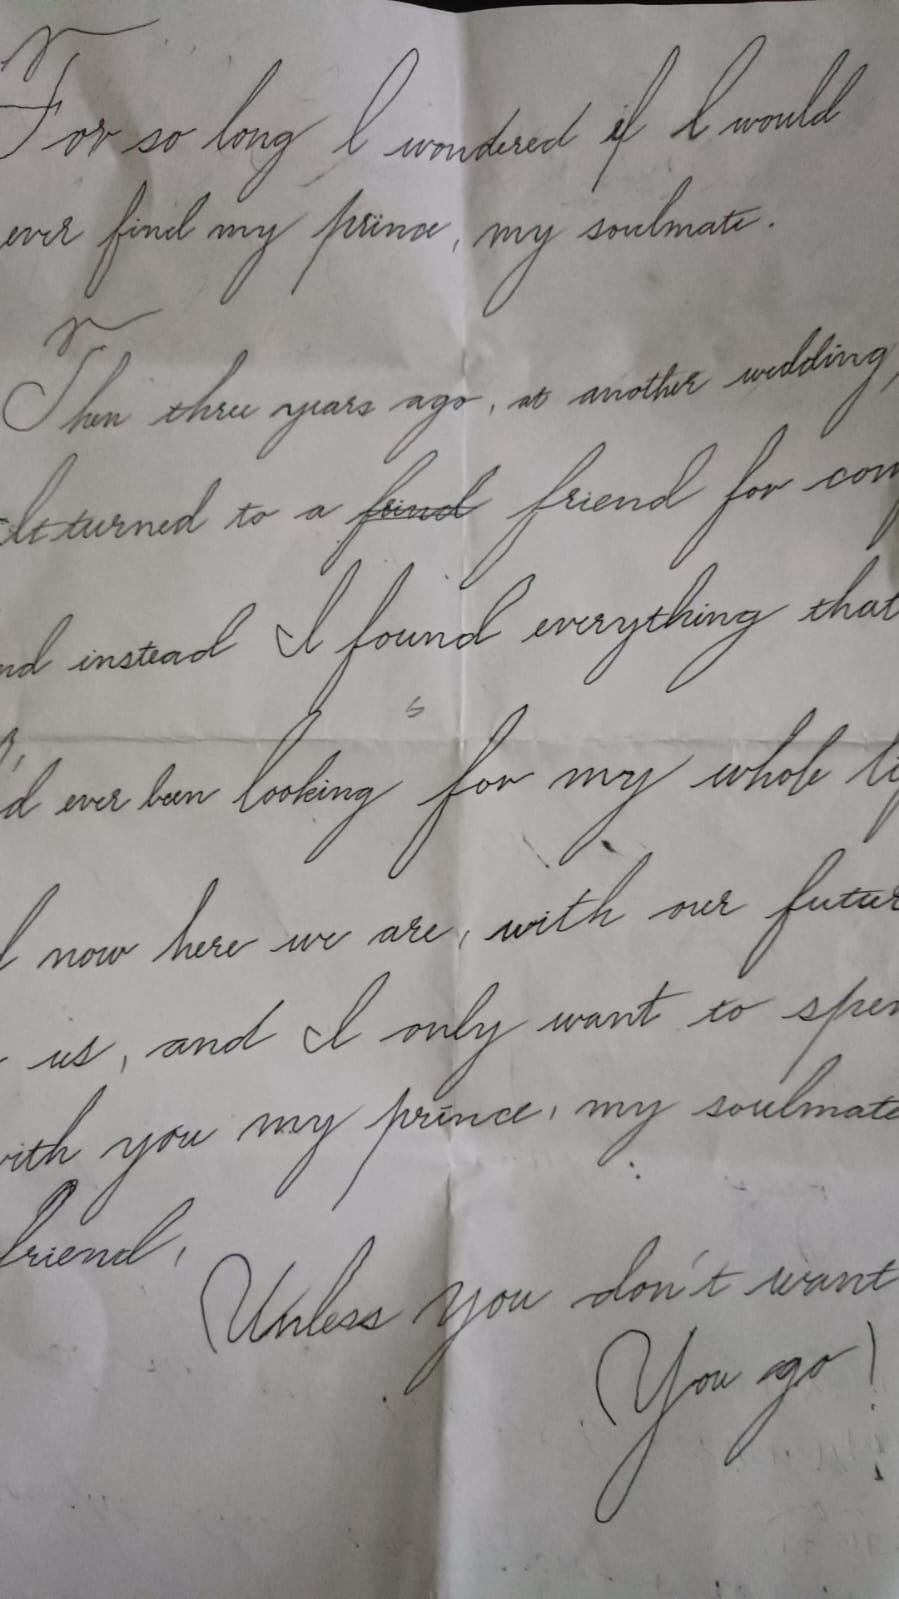 For so long I wondered if I would
ever find my prince, my soulmate.
Then three years ago, at another wedding,
I turned to a friend friend for com
nd instead I found everything that
I'd ever been looking for my whole li
d now here we are, with our futur
us, and I only want to spen
with you my prince, my soulmate
friend,
Unless you don't want
You go!